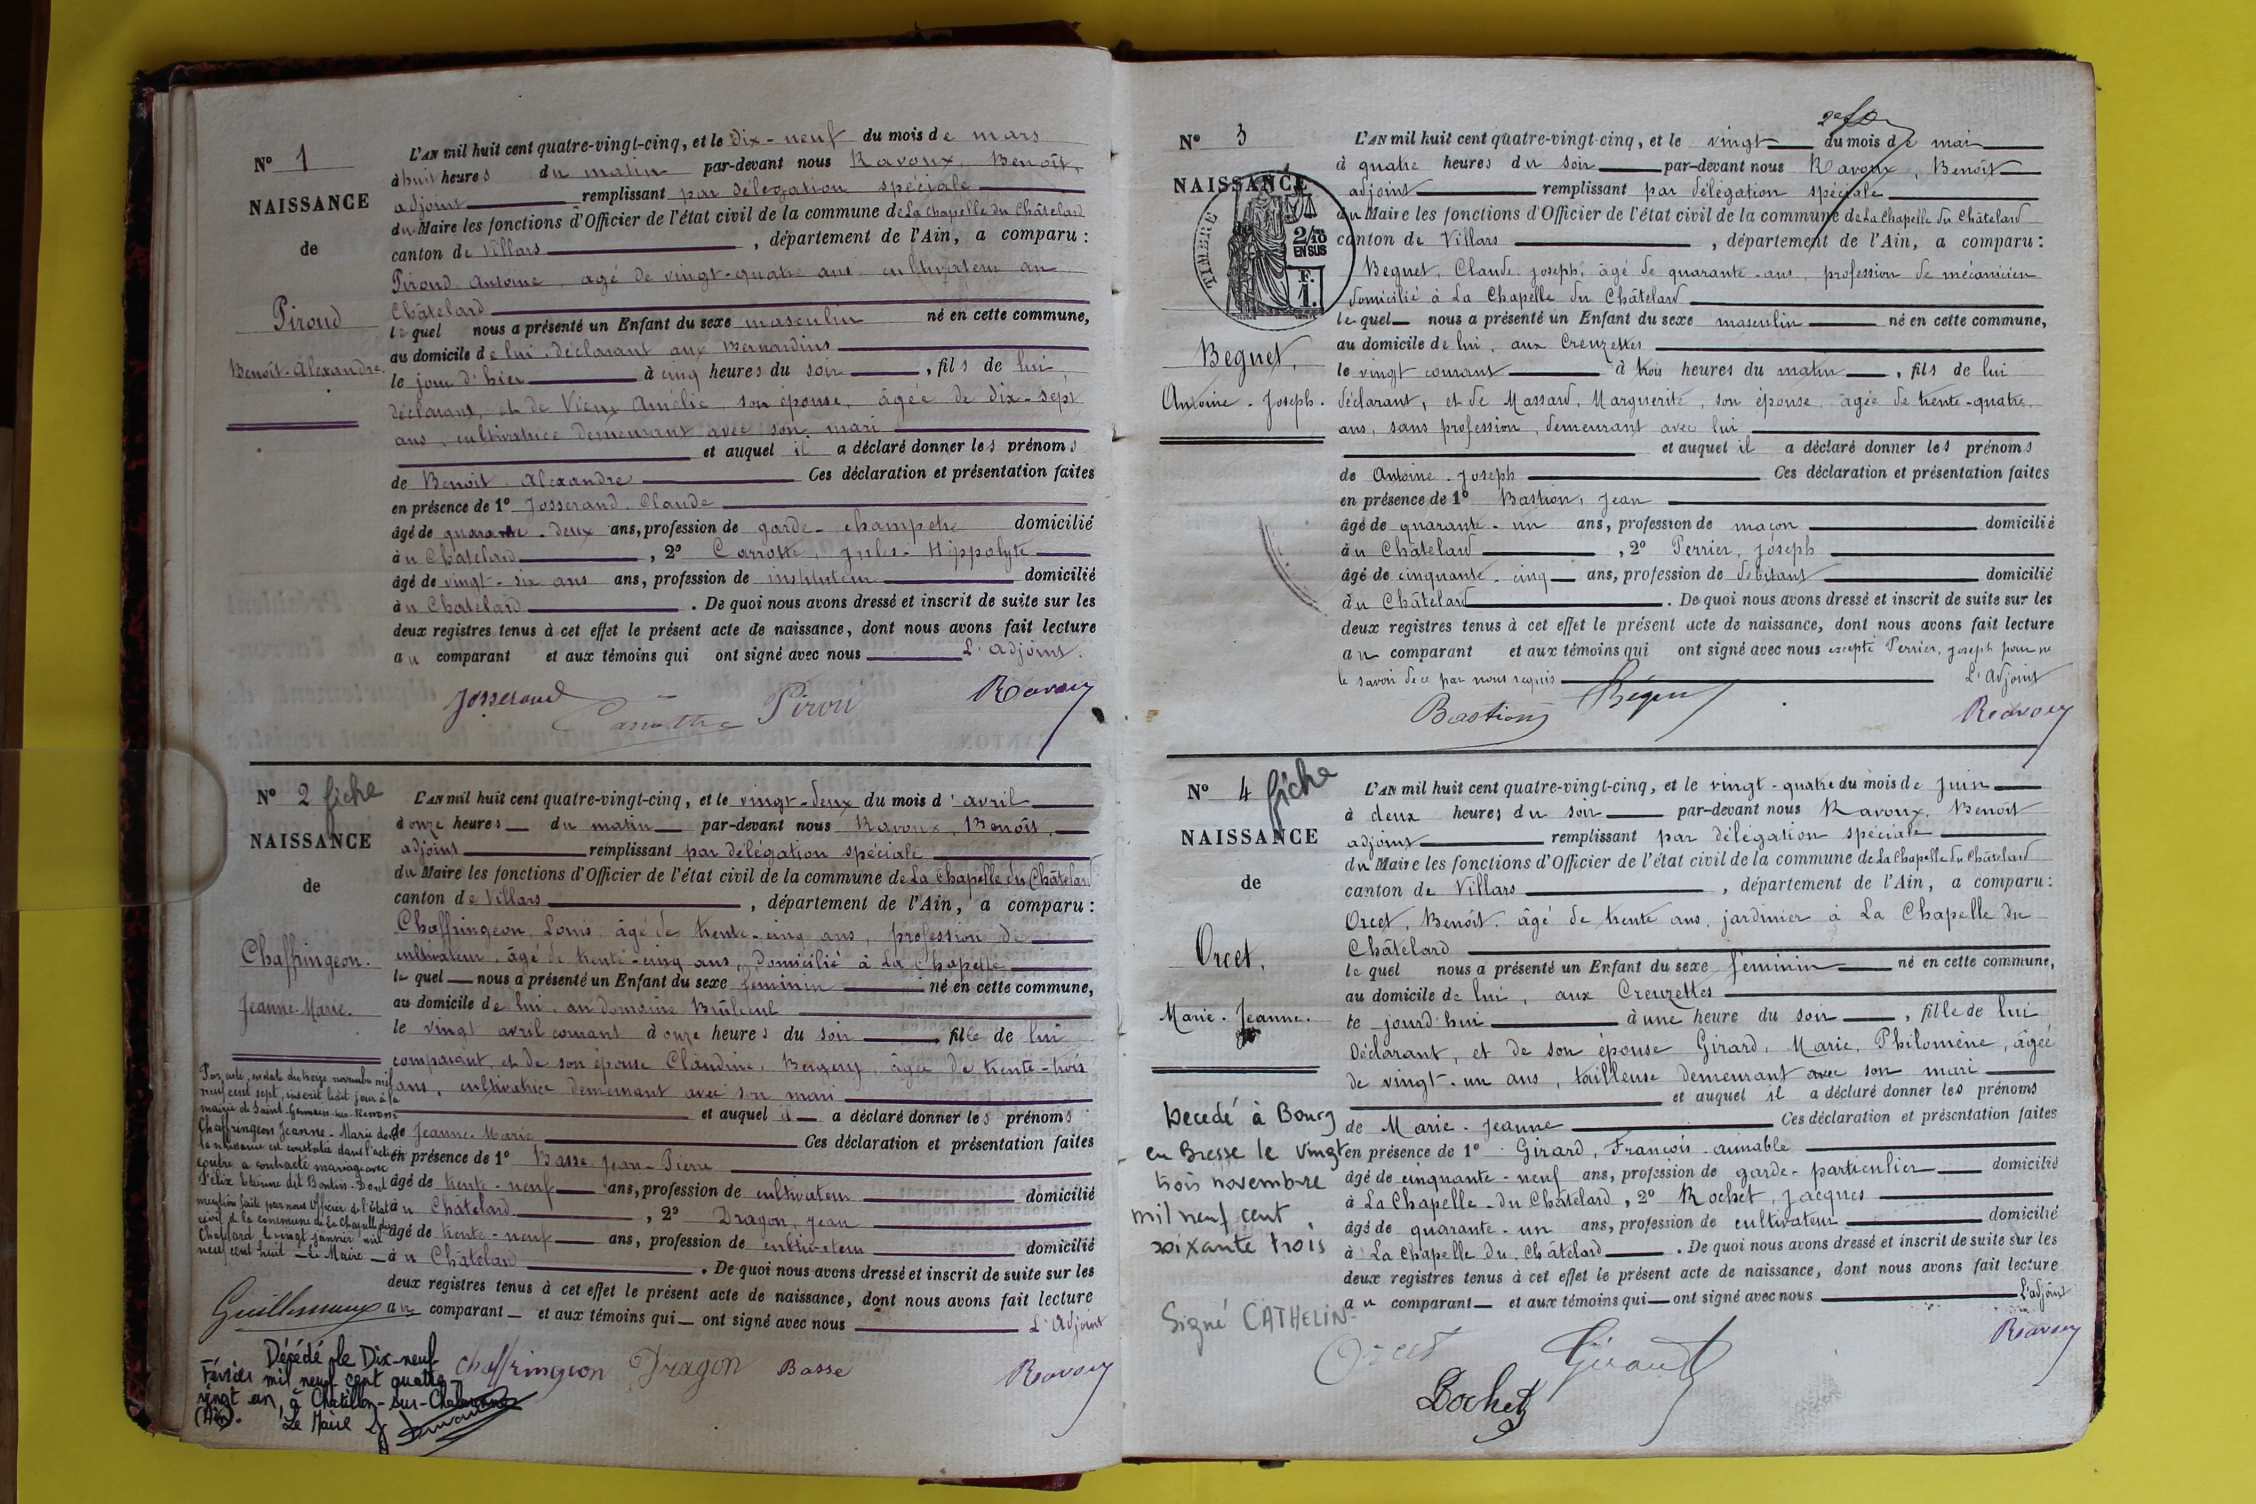 N° 1
NAISSANCE
de
Piroud
Benoît-Alexandre.
L'AN mil huit cent quatre-vingt-cinq, et le dix-neuf du mois de mars
à huit heures du matin par-devant nous Ravoux, Benoît,
adjoint remplissant par délégation spéciale
du Maire les fonctions d'Officier de l'état civil de la commune de La Chapelle du Châtelard
canton de Villars, département de l'Ain, a comparu :
Piroud Antoine, agé de vingt-quatre ans cultivateur au
Châtelard
lequel nous a présenté un Enfant du sexe masculin né en cette commune,
au domicile de lui déclarant aux Bernardins
le jour d'hier à cinq heures du soir, fils de lui
déclarant, et de Vieux Amélie son épouse, âgée de dix-sept
ans, cultivatrice demeurant avec son mari
et auquel il a déclaré donner les prénoms
de Benoit Alexandre Ces déclaration et présentation faites
en présence de 1° Josserand Claude
âgé de quarante-deux ans, profession de garde-champetre domicilié
au Châtelard, 2° Carrotte, Jules-Hippolyte
âgé de vingt-six ans ans, profession de instituteur domicilié
au Chatelard. De quoi nous avons dressé et inscrit de suite sur les
deux registres tenus à cet effet le présent acte de naissance, dont nous avons fait lecture
au comparant et aux témoins qui ont signé avec nous L'adjoint.
Josserand Pirou Ravoux
N° 2 fiche
NAISSANCE
de
Chaffringeon.
Jeanne-Marie.
L'AN mil huit cent quatre-vingt-cinq, et le vingt-deux du mois d'avril
à onze heures du matin par-devant nous Ravoux, Benoît,
adjoint remplissant par délégation spéciale
du Maire les fonctions d'Officier de l'état civil de la commune de La Chapelle du Châtelard
canton de Villars, département de l'Ain, a comparu :
Chaffringeon, Louis âgé de trente-cinq ans, profession de
cultivateur, âgé de trente-cinq ans, domicilié à La Chapelle
lequel nous a présenté un Enfant du sexe féminin né en cette commune,
au domicile de lui, au domaine
le vingt avril courant à onze heures du soir fille de lui
comparant, et de son épouse Claudine, âgée de trente-trois
ans, cultivatrice demeurant avec son mari
et auquel il a déclaré donner les prénoms
de Jeanne-Marie Ces déclaration et présentation faites
en présence de 1° Basse Jean-Pierre
âgé de trente-neuf ans, profession de cultivateur domicilié
au Châtelard, 2° Dragon, Jean
âgé de trente-neuf ans, profession de cultivateur domicilié
au Châtelard. De quoi nous avons dressé et inscrit de suite sur les
deux registres tenus à cet effet le présent acte de naissance, dont nous avons fait lecture
au comparant et aux témoins qui ont signé avec nous L'Adjoint
Chaffringeon Dragon Basse Ravoux
Par acte, en date du treize novembre mil
neuf cent sept, inscrit ledit jour à la
mairie de Saint-Germain-sur-Renon,
Chaffringeon Jeanne-Marie dont
la naissance est constatée dans l'acte ci-
contre a contracté mariage avec
Félix Etienne dit Bontin. Dont
mention faite par nous Officier de l'état
civil de la commune de La Chapelle du
Chatelard le vingt janvier mil
neuf cent huit Le Maire
Décédé le Dix-neuf
Février mil neuf cent quatre-
vingt un, à Chatillon-sur-Chalaronne
(Ain). Le Maire
N° 3
NAISSANCE
TIMBRE
2/10
EN SUS
F.
1.
Beguet,
Antoine-Joseph.
L'AN mil huit cent quatre-vingt-cinq, et le vingt du mois de mai
à quatre heures du soir par-devant nous Ravoux, Benoît
adjoint remplissant par délégation spéciale
du Maire les fonctions d'Officier de l'état civil de la commune de La Chapelle du Châtelard
canton de Villars, département de l'Ain, a comparu :
Beguet, Claude Joseph, âgé de quarante-ans, profession de mécanicien
domicilié à La Chapelle du Châtelard
lequel nous a présenté un Enfant du sexe masculin né en cette commune,
au domicile de lui, aux Creuzettes
le vingt courant à trois heures du matin, fils de lui
déclarant, et de Massard, Marguerite, son épouse âgée de trente-quatre
ans, sans profession, demeurant avec lui
et auquel il a déclaré donner les prénoms
de Antoine-Joseph Ces déclaration et présentation faites
en présence de 1° Bastion, Jean
âgé de quarante-un ans, profession de maçon domicilié
au Châtelard, 2° Perrier, Joseph
âgé de cinquante-cinq ans, profession de débitant domicilié
au Châtelard. De quoi nous avons dressé et inscrit de suite sur les
deux registres tenus à cet effet le présent acte de naissance, dont nous avons fait lecture
au comparant et aux témoins qui ont signé avec nous excepté Perrier, Joseph pour ne
le savoir de ce par nous requis L'Adjoint
Bastion Béguet Ravoux
N° 4 fiche
NAISSANCE
de
Orcet,
Marie-Jeanne.
L'AN mil huit cent quatre-vingt-cinq, et le vingt-quatre du mois de Juin
à deux heures du soir par-devant nous Ravoux, Benoît
adjoint remplissant par délégation spéciale
du Maire les fonctions d'Officier de l'état civil de la commune de La Chapelle du Châtelard
canton de Villars, département de l'Ain, a comparu :
Orcet, Benoît âgé de trente ans, jardinier à La Chapelle du
Châtelard
lequel nous a présenté un Enfant du sexe féminin né en cette commune,
au domicile de lui, aux Creuzettes
le jourd'hui à une heure du soir, fille de lui
Déclarant, et de son épouse Girard, Marie, Philomène, âgée
de vingt-un ans, tailleuse demeurant avec son mari
et auquel il a déclaré donner les prénoms
de Marie-Jeanne Ces déclaration et présentation faites
en présence de 1° Girard, François aimable
âgé de cinquante-neuf ans, profession de garde-particulier domicilié
à La Chapelle-du Châtelard, 2° Rochet, Jacques
âgé de quarante-un ans, profession de cultivateur domicilié
à La Chapelle du Châtelard. De quoi nous avons dressé et inscrit de suite sur les
deux registres tenus à cet effet le présent acte de naissance, dont nous avons fait lecture
au comparant et aux témoins qui ont signé avec nous L'adjoint
Decedé à Bourg
en Bresse le vingt
trois novembre
mil neuf cent
soixante trois
Signé CATHELIN
Orcet Girard Ravoux
Rochet